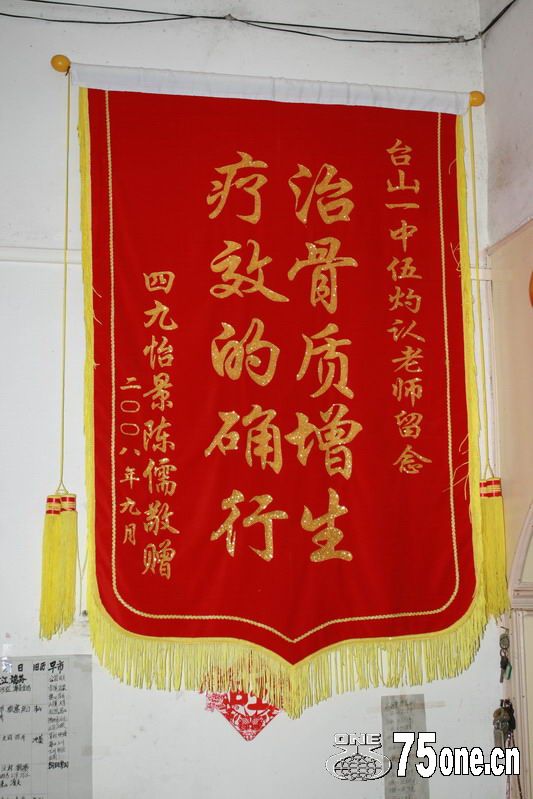 台山一中伍灼认老师留念
治骨质增生
疗效的确行
四九怡景陈儒敬赠
二〇〇八年九月
日 旧历 早市
ONE
75one.cn